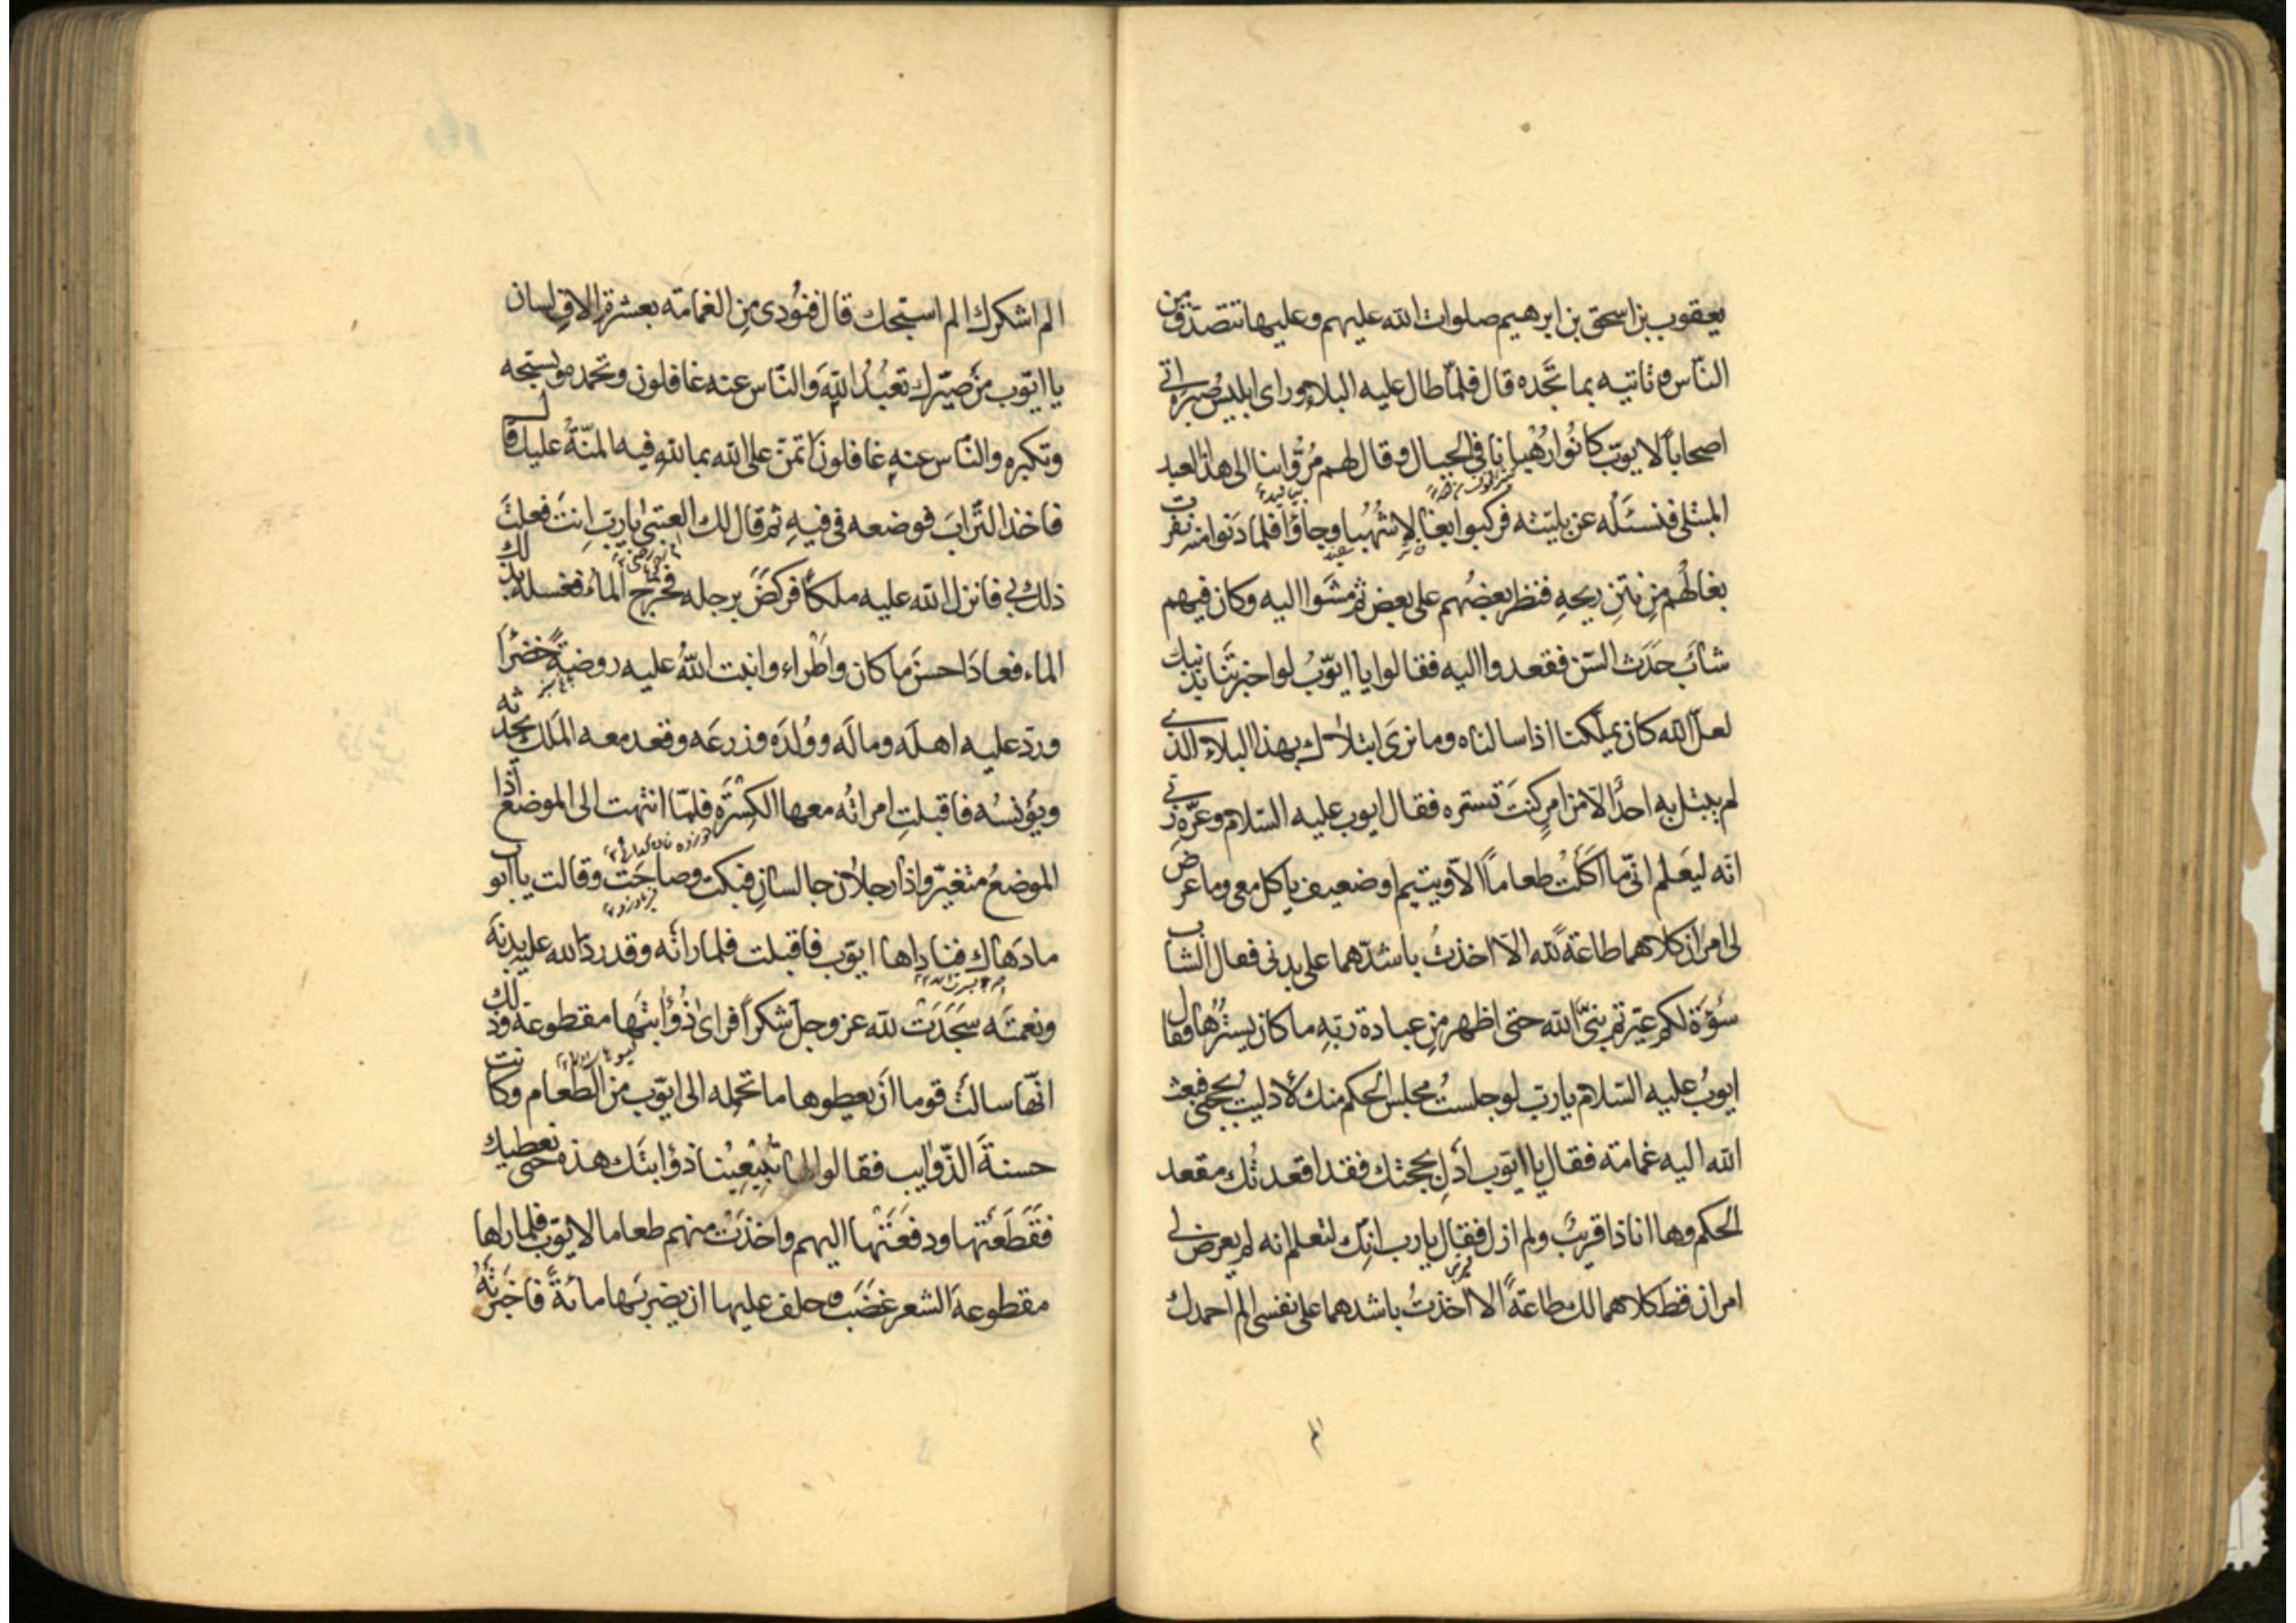 يعقوب بن اسحق بن ابرهيم صلوات الله عليهم وعليها تتصدق من
الناس و تاتيه بما تجده قال فلما طال عليه البلاء وراى ابليس صبره اتى
اصحاباً لايوب كانوا رُهباناً فى الجبال وقال لهم مُرّوا بنا الى هذا العبد
المبتلى فنسئله عن بليته فركبوا بغالا شُهُبا وجاؤا فلما دنوا منه نفرت
بغالهُم مِن نتنِ ريحِهِ فنظر بعضُهم على بعض ثم مشَوا اليه وكان فيهم
شابّ حَدَث السّن فقعدوا اليه فقالوا يا ايّوبُ لو اخبرتَنا بذنبك
لعلّ الله كان يملكنا اذا سالناه وما نرى ابتلاك بهذا البلاء الذى
لم يبتل به احدٌ الّا من امرٍ كنتَ تستره فقال ايوب عليه السّلام وعزّة ربى
انّه ليَعلم انّى ما اكلتُ طعاماً الّا ويتيم او ضعيف ياكل معى وما عرض
لى امران كلاهما طاعة لله الّا اخذتُ باشدّهما على بدنى فعال الشاب
سَوْءَة لكم عيّرتم نبىّ الله حتى اظهر مِن عبادة ربّهِ ما كان يسترُها فقال
ايوبُ عليه السّلام يا ربّ لو جلستُ مجلس الحكم منك لادليت بحجتى فبعث
الله اليه غمامته فقال يا ايّوب ادلِ بحجتك فقد اقعدتُك مقعد
الحكم وها انا ذا قريبٌ ولم ازل فقال يا رب انّك لتعلم انه لم يعرض لى
امران قط كلاهما لك طاعةً الا اخذتُ باشدهما على نفسى الم احمدك
الم
الم اشكرك الم اسبّحك قال فنُودى مِن الغمامته بعشرة الاف لسان
يا ايّوب مَن صيّرك تعبُدُ اللهَ والنّاس عنه غافلون وتحمده وتسبّحه
وتكبره والنّاس عنهِ غافلون اتمنّ على الله بما للهِ فيه المنّةُ عليك قال
فاخذ التّرابَ فوضعه فى فيهِ ثم قال لك العتبىٰ يا ربّ انتَ فعلتَ
ذلك بى فانزل الله عليه ملكاً فركضَ برجله فخرج الماءُ فغسله بذلك
الماء فعاد احسنَ ما كان واطراء وانبت اللهُ عليه روضةً خضراً
وردّ عليه اهلَه ومالَه ووُلدَه وزرعَه وقعد معه المَلَك يحدثه
ويُؤنسُه فاقبلتِ امراتُه معها الكِسْرَة فلمّا انتهت الى الموضع اذا
الموضعُ متغيّر واذا رجلان جالسانِ فبكت وصاحَتْ وقالت يا ايوب
ما دَهاك فناداها ايّوب فاقبلت فلما راتْه وقد ردّ الله عليه بدنَه
ونعمتَه سَجَدَتْ لله عز وجل شكراً فراى ذُؤابتَها مقطوعة وذلك
انّها سالتْ قوما اَن يعطوها ما تحمِله الى ايّوب من الطعام وكانت
حسنةَ الذّوايب فقالوا لها تَبيعينا ذؤابتَك هذه حتى نعطيك
فقَطَعَتْها ودفعَتْها اليهم واخذَتْ منهم طعاما لايوّب فلما راها
مقطوعةَ الشعر غضَبَ وحلف عليها ان يضربَها مائةً فاخبرَتْهُ